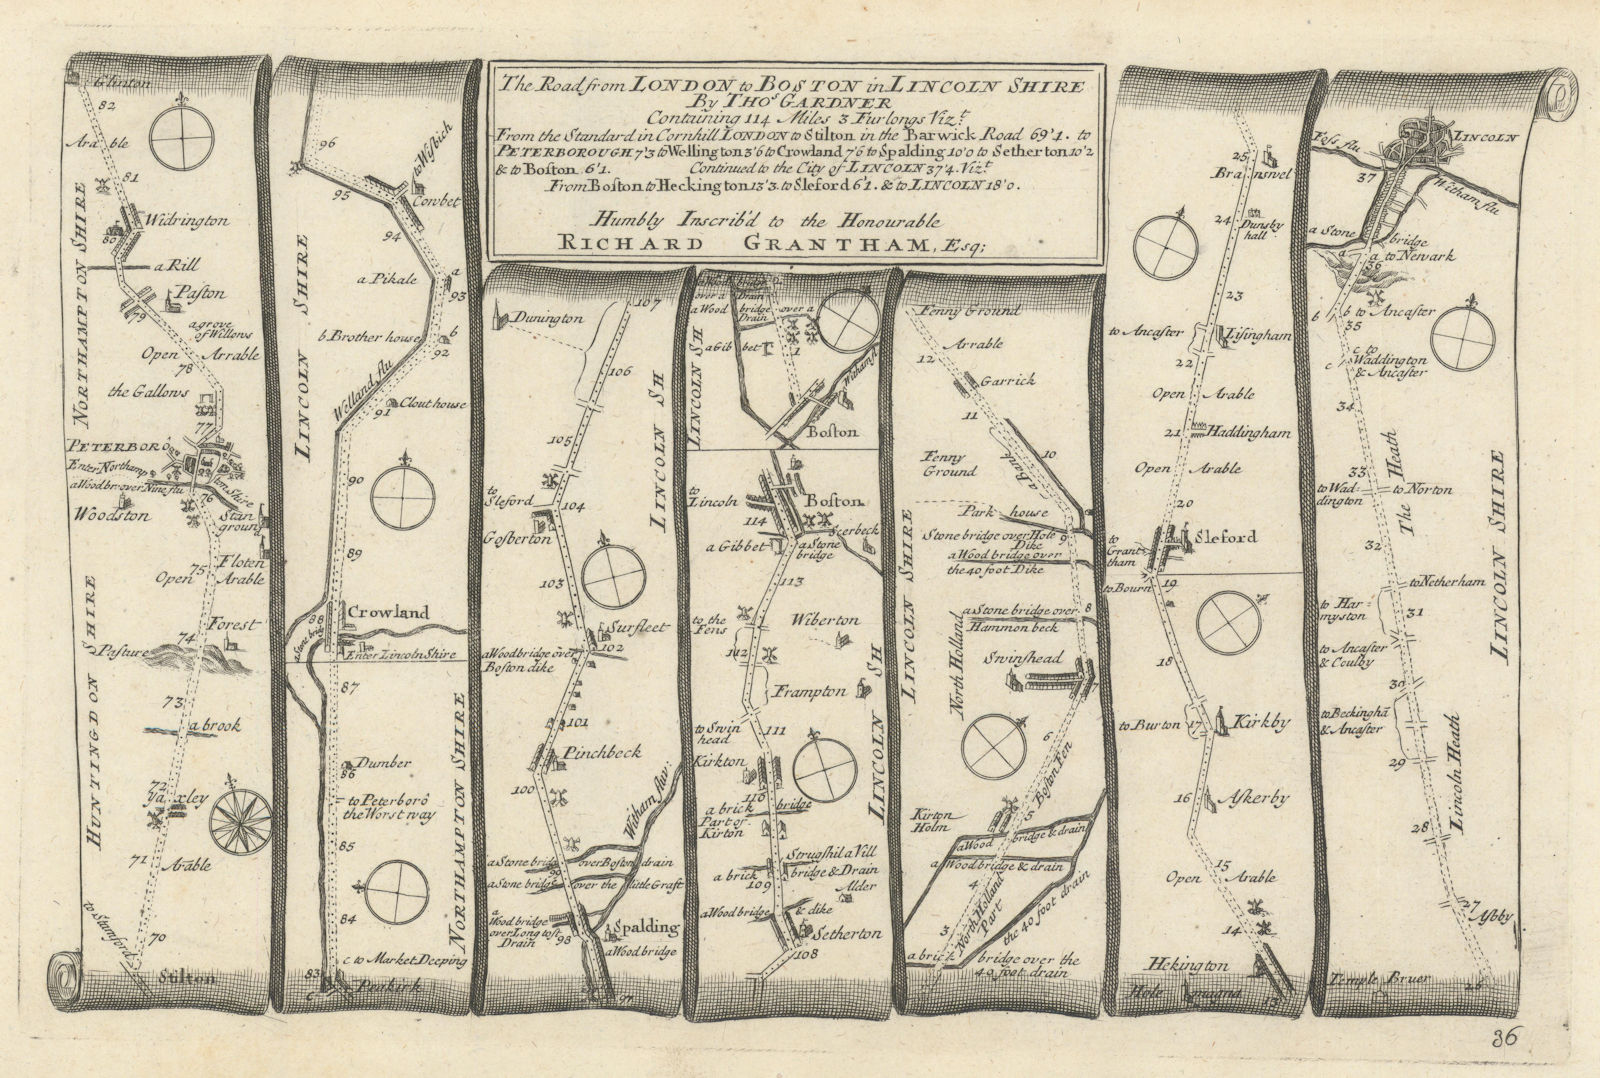 The Road from LONDON to BOSTON in LINCOLN SHIRE
By THOs. GARDNER
Containing 114 Miles 3 Furlongs Vizt.
From the Standard in Cornhill LONDON to Stilton in the Barwick Road 69'1. to
PETERBOROUGH 7'3 to Wellington 3'6 to Crowland 7'6 to Spalding 10'0 to Setherton 10'2
& to Boston 6'1. Continued to the City of LINCOLN 37'4. Vizt.
From Boston to Heckington 13'3. to Sleford 6'1. & to LINCOLN 18'0.
Humbly Inscrib'd to the Honourable
RICHARD GRANTHAM, Esq;
Glinton
82
Arable
81
Widrington
80
a Rill
Paston
79
a grove
of Willows
Open Arrable
78
the Gallows
77
PETERBORO
Enter Northampton Shire
a Wood br: over Nine flu
76
Woodston
Stanground
Floten
75
Open Arable
Forest
74
Pasture
73
a brook
72
Yaxley
71
Arable
to Stamford
70
Stilton
NORTHAMPTON SHIRE
HUNTINGDON SHIRE
96
to Wisbich
95
Cowbet
94
a Pikale
a
93
b Brother house
b
92
Welland flu
91
Clout house
90
89
Crowland
88
a Stone brig
Enter Lincoln Shire
87
Dumber
86
to Peterborô
the Worst way
85
84
c to Market Deeping
83
c
Peakirk
LINCOLN SHIRE
NORTHAMPTON SHIRE
107
Dunington
106
105
to
Sleford
104
Gosberton
103
Surfleet
102
a Wood bridge over
Boston dike
101
Pinchbeck
100
Witham fluv:
a Stone bridg over Boston drain
99
a Stone bridg over the little Graft
a
Wood bridge
over Long tost
Drain
98
Spalding
a Wood bridge
97
LINCOLN SH
a Wood bridge
over a Drain
a Wood bridge over a
Drain
2
a Gibbet
1
Witham fl
Boston
LINCOLN SH
to
Lincoln
Boston
114
Scerbeck
a Gibbet
a Stone
bridge
113
to the
Fens
Wiberton
112
Frampton
to Swin
head
111
Kirkton
110
a brick bridge
Part of
Kirton
Strugshil a Vill
a brick bridge & Drain
109
Alder
a Wood bridge & dike
Setherton
108
LINCOLN SH
Fenny Ground
Arrable
12
Garrick
11
Fenny
Ground
10
a Bank
Park house
Stone bridge over Hole
Dike
9
a Wood bridge over
the 40 foot Dike
a Stone bridge over
8
Hammon beck
Swinshead
7
North Holland
6
Boston Fen
Kirton
Holm
5
a Wood bridge & drain
a Wood bridge & drain
4
North Holland
Part
3
the 40 foot drain
a brick bridge over the
40 foot drain
LINCOLN SHIRE
25
Branswel
24
Dunsby
hall
23
to Ancaster
Lisingham
22
Open Arable
21
Haddingham
Open Arable
20
Sleford
to
Grantham
to Bourn
19
18
to Burton
17
Kirkby
16
Askerby
15
Open Arable
14
Hekington
Hole magna
13
Foss flu
LINCOLN
37
Witham flu
a Stone bridge
a
a to Newark
36
b
b to Ancaster
35
c
c to
Waddington
& Ancaster
34
The Heath
33
to Waddington
to Norton
32
to Netherham
to Harmyston
31
to Ancaster
& Coulby
30
to Beckingha
& Ancaster
29
Lincoln Heath
28
27
Asbby
Temple Bruer
26
LINCOLN SHIRE
36